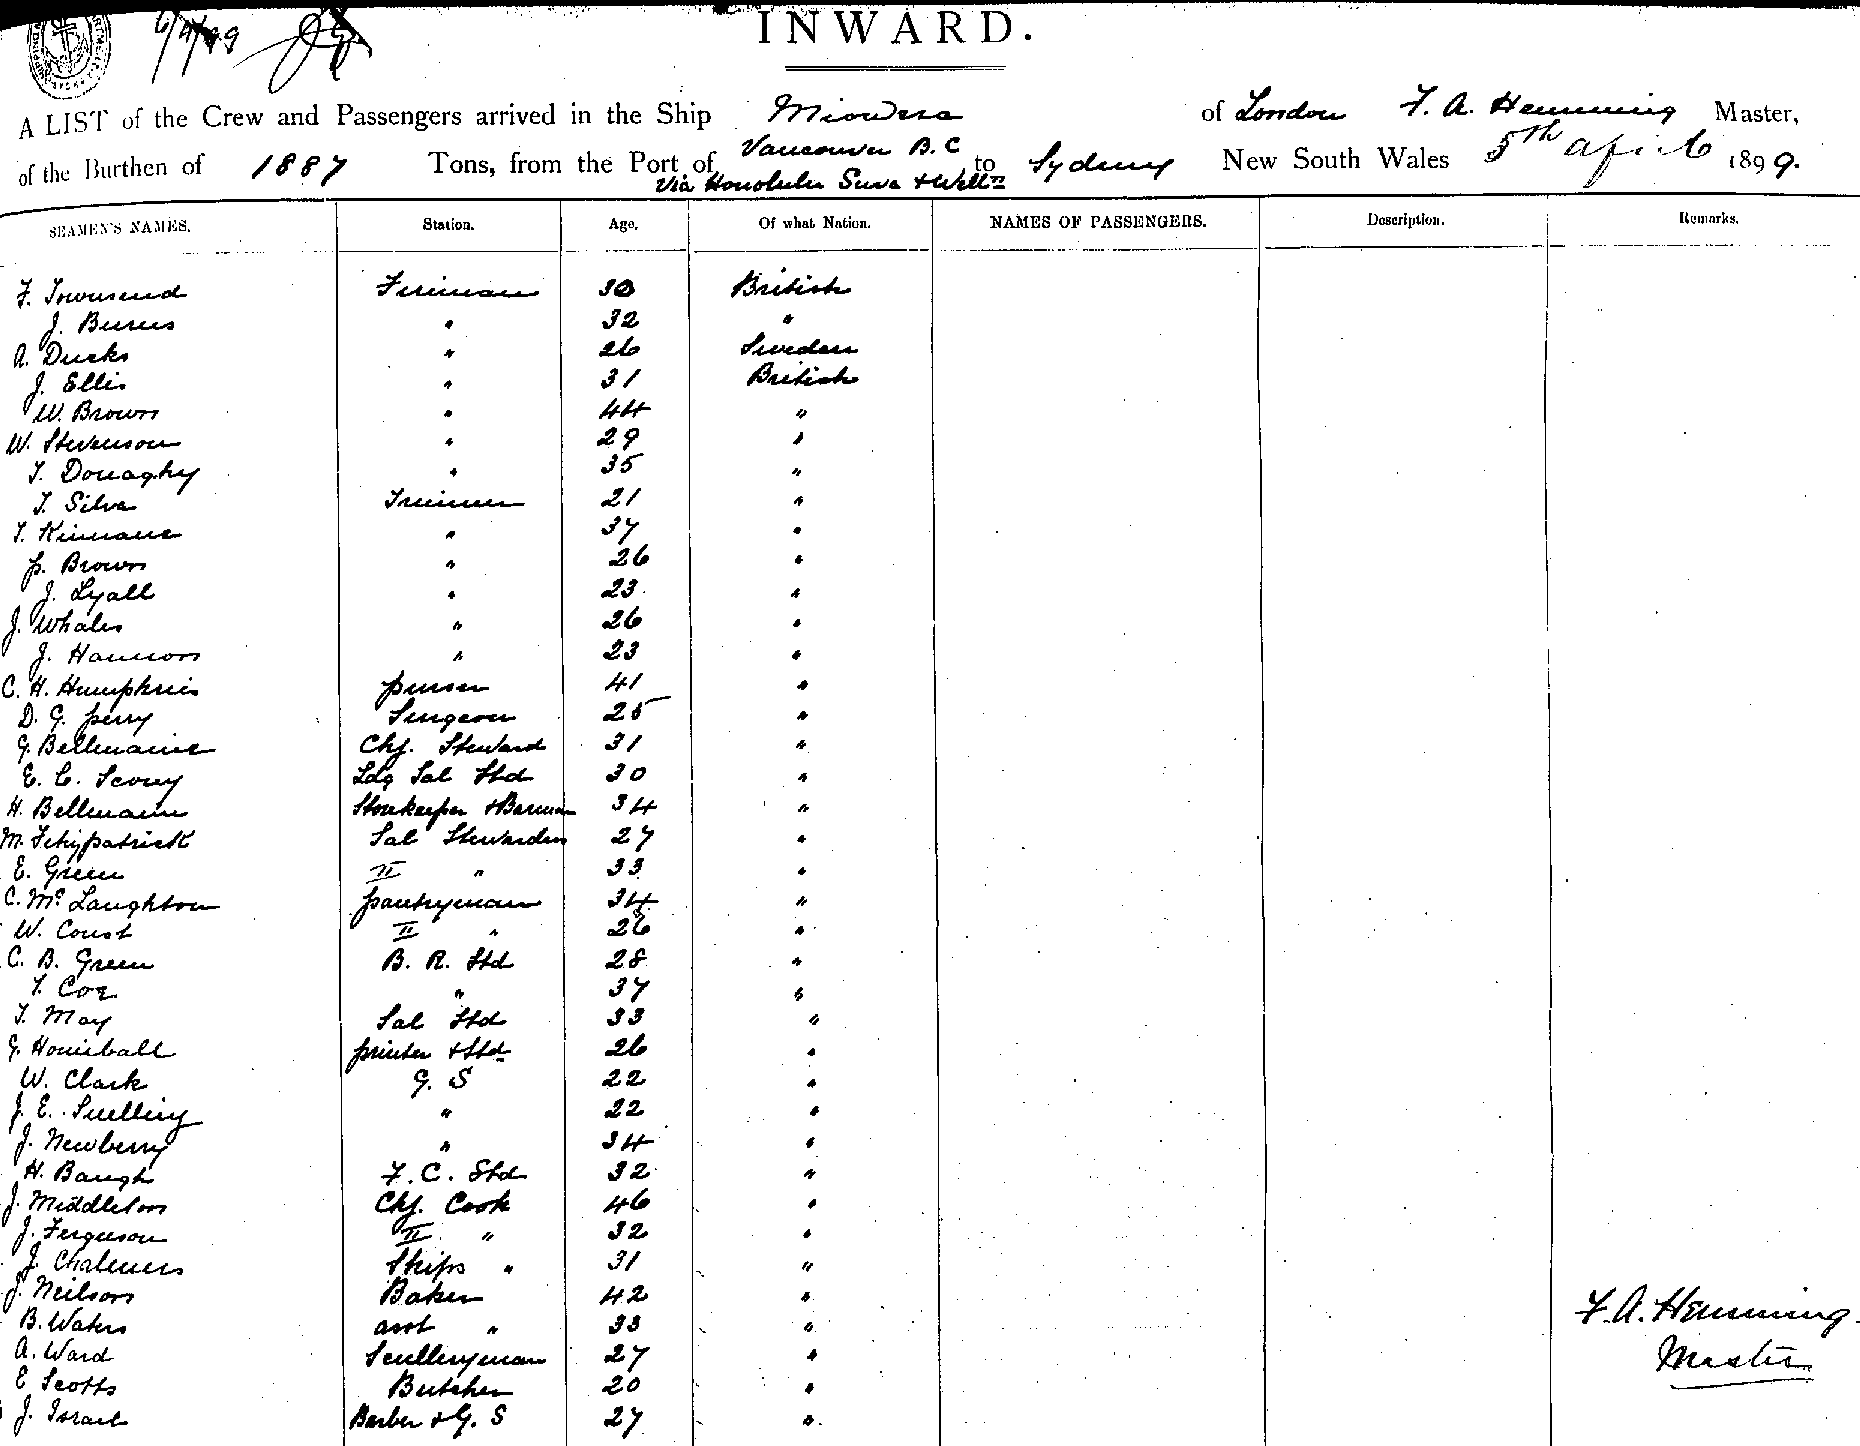 6/4/99
INWARD.
A LIST of the Crew and Passengers arrived in the Ship Miowera of London F. A. Hemming Master,
of the Burthen of 1887 Tons, from the Port of Vancouver B.C to Sydney New South Wales 5th April 1899.
Via Honolulu Suva & Welltn
SEAMEN'S NAMES. Station. Age. Of what Nation. NAMES OF PASSENGERS. Description. Remarks.
F. Townsend Fireman 30 British
J. Burns " 32 "
A. Ducks " 26 Sweden
J. Ellis " 31 British
W. Brown " 44 "
W. Stevenson " 29 "
T. Donaghy " 35 "
T. Silva Trimmer 21 "
T. Kinnane " 37 "
P. Brown " 26 "
J. Lyall " 23 "
J. Whales " 26 "
J. Hannon " 23 "
C. H. Humphries Purser 41 "
D. G. Perry Surgeon 25 "
G. Bellmaine Chf. Steward 31 "
E. C. Ldg Sal Std 30 "
H. Bellmaine Storekeeper & Barman 34 "
M. Fitzpatrick Sal Stewardess 27 "
E. Green II " 33 "
C. Mc Laughton Pantryman 34 "
W. Coust II " 26 "
C. B. Green B. R. Std 28 "
T. Coe " 37 "
T. May Sal Std 33 "
G. Honeyball Printer & Std 26 "
W. Clark G. S 22 "
J. E. Snelling " 22 "
J. Newberry " 34 "
H. Baugh F. C. Std 32 "
J. Middleton Chf. Cook 46 "
J. Ferguson II " 32 "
J. Chalmers Ships " 31 "
J. Neilson Baker 42 "
B. Waters asst " 33 "
A. Ward Sculleryman 27 "
E Scotts Butcher 20 "
J. Israel Barber & G. S 27 "
F. A. Hemming
Master